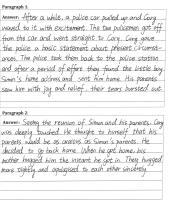 Paragraph 1
Answer: After a while, a police car pulled up and Cory
waved to it with excitement. The two policemen got off
from the car and went straight to Cory. Cory gave
the police a basic statement about present circumst-
ances. The police took them back to the police station
and after a period of effort they found the little boy
Simon's home address and sent him home. His parents
saw him with joy and relief, their tears bursted out.
Paragraph 2
Answer: Seeing the reunion of Simon and his parents, Cory
was deeply touched. He thought to himself that his
parents would be as anxious as Simon's parents. He
decided to go back home. When he got home, his
mother hugged him the instant he got in. They hugged
more tightly and apologised to each other sincerely.